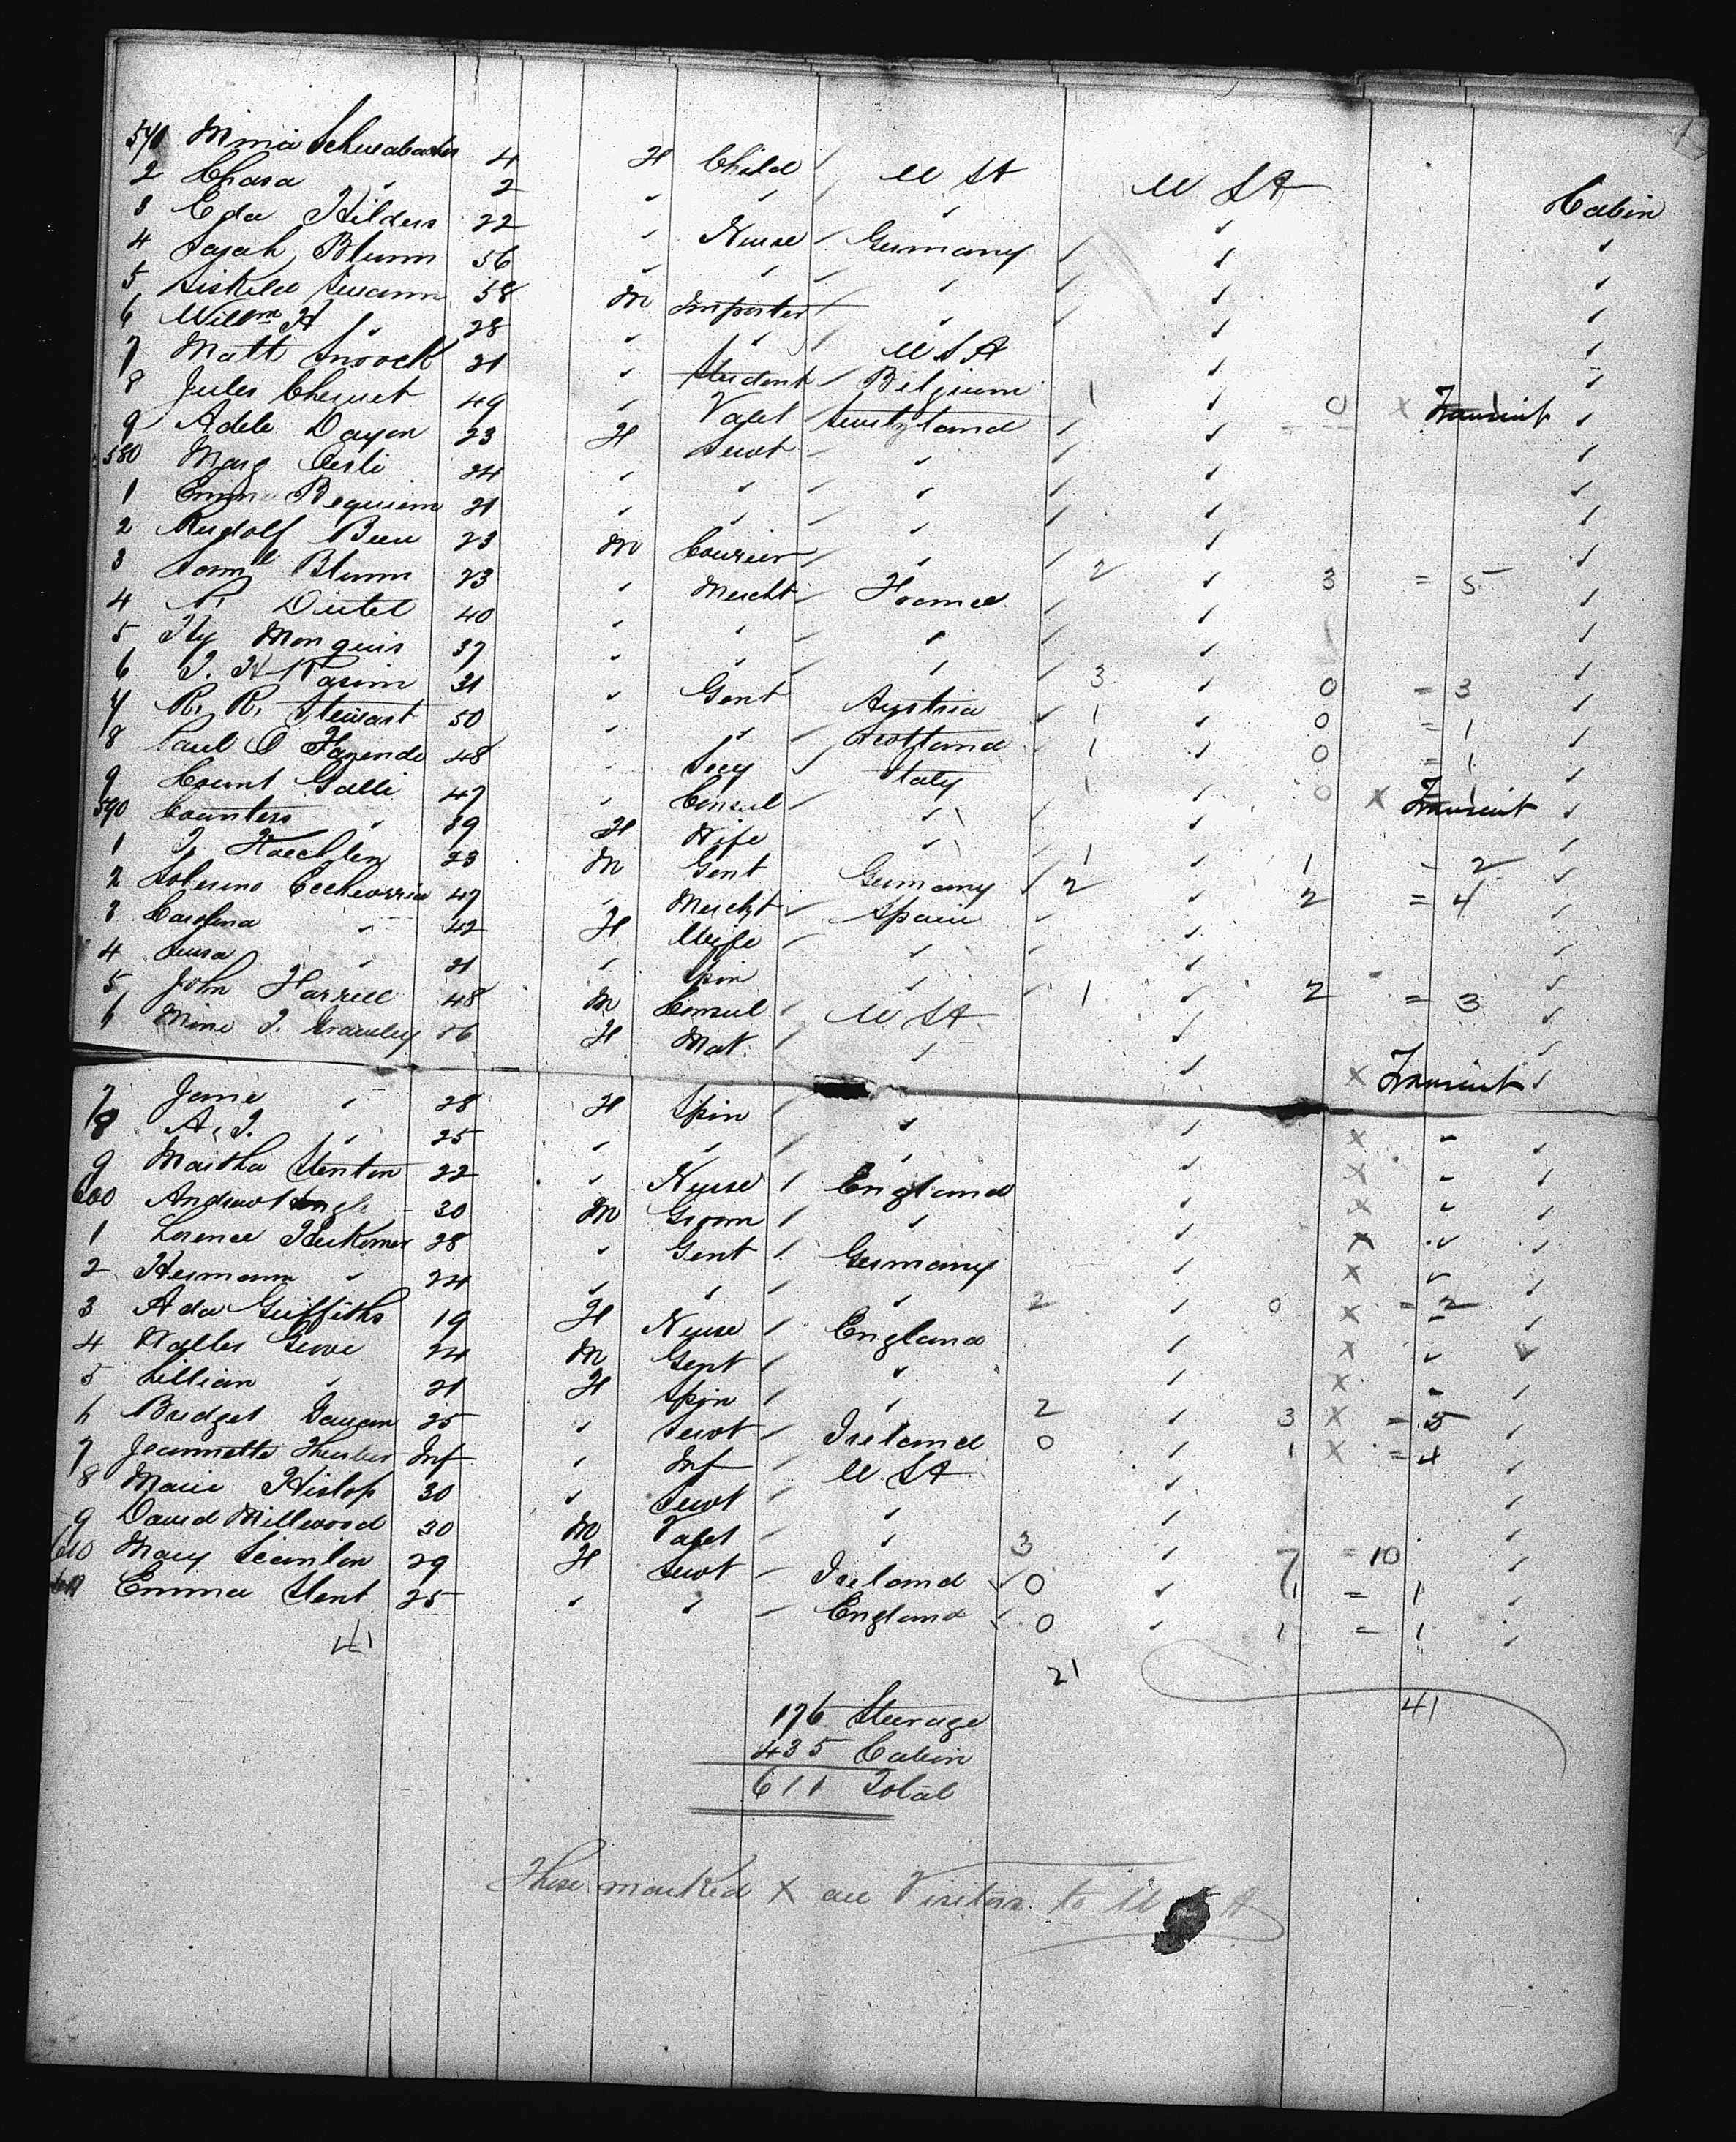 571 Mina Schwabacher 4 F Child / U St U St Cabin
2 Chara " 2 " " / " " "
3 Eda Hilders 22 " Nurse / Germany / " "
4 Sarah Blumm 56 " " / " / " "
5 58 M Importer / " / " "
6 Willm H " 28 " " / U S A " "
7 Matt Snoock 21 " Student / Belgium 1 " 0 x Transient "
8 Jules 49 " Valet / Switzland / " "
9 Adele Dayon 23 F Servt / " / " "
580 Marg Oesli 24 " " / " / " "
1 Emma Requiem 21 " " / " / " "
2 Rudolf 23 M Courier / " / 2 " 3 = 5 "
3 Saml Blumm 23 " Mercht / France / " "
4 40 " " / " / " "
5 Hy Monquis 37 " " / " / 3 " 0 = 3 "
6 31 " Gent Austria / 1 " 0 = 1 "
7 R. R. Stewart 50 " " / Scotland 1 " 0 = 1 "
8 Paul O 48 " Secy / Italy / 1 " 0 x Transient "
9 Count Galli 47 " Consul / " / " "
590 Countess " 39 F Wife " " 1 " 1 - 2 "
1 J. Koechlen 23 M Gent Germany / 2 " 2 = 4 "
2 Soberino Eccheverria 47 " Mercht / Spain / " "
3 Carolina " 42 F Wife / " / " "
4 " 21 " Spin " / 1 " 2 = 3 "
5 John Harrell 48 M Consul / U St " "
6 Mme J. 56 F Mat. / " " x Transient "
7 Jane " 28 F Spin / " " x " "
8 A. J. " 25 " " / " " x " "
9 Martha Stenton 22 " Nurse / England " x " "
600 Andrew 30 M Groom / " " x " "
1 Lorence Herkomer 28 " Gent / Germany " x " "
2 Hermann " 24 " " / " 2 " 0 x = 2 "
3 Ada Griffiths 19 F Nurse / England " x " "
4 Walter 24 M Gent / " " x " "
5 Lillian " 21 F Spin / " 2 " 3 x = 5 "
6 Bridget 25 " Servt / Ireland 0 " 1 x = "
7 Jeannette Thurber Inf " Inf / U St " "
8 Marie Hislop 30 " Servt / " " "
9 David Millwood 30 M Valet / " 3 " 7 = 10 "
610 Mary Scanlon 29 F Servt / Ireland / 0 " 1 = 1 "
611 Emma Stent 25 " " / England / 0 " 1 = 1 "
41
21
41
176 Steerage
435 Cabin
611 Total
These marked x are Visitors to U S A